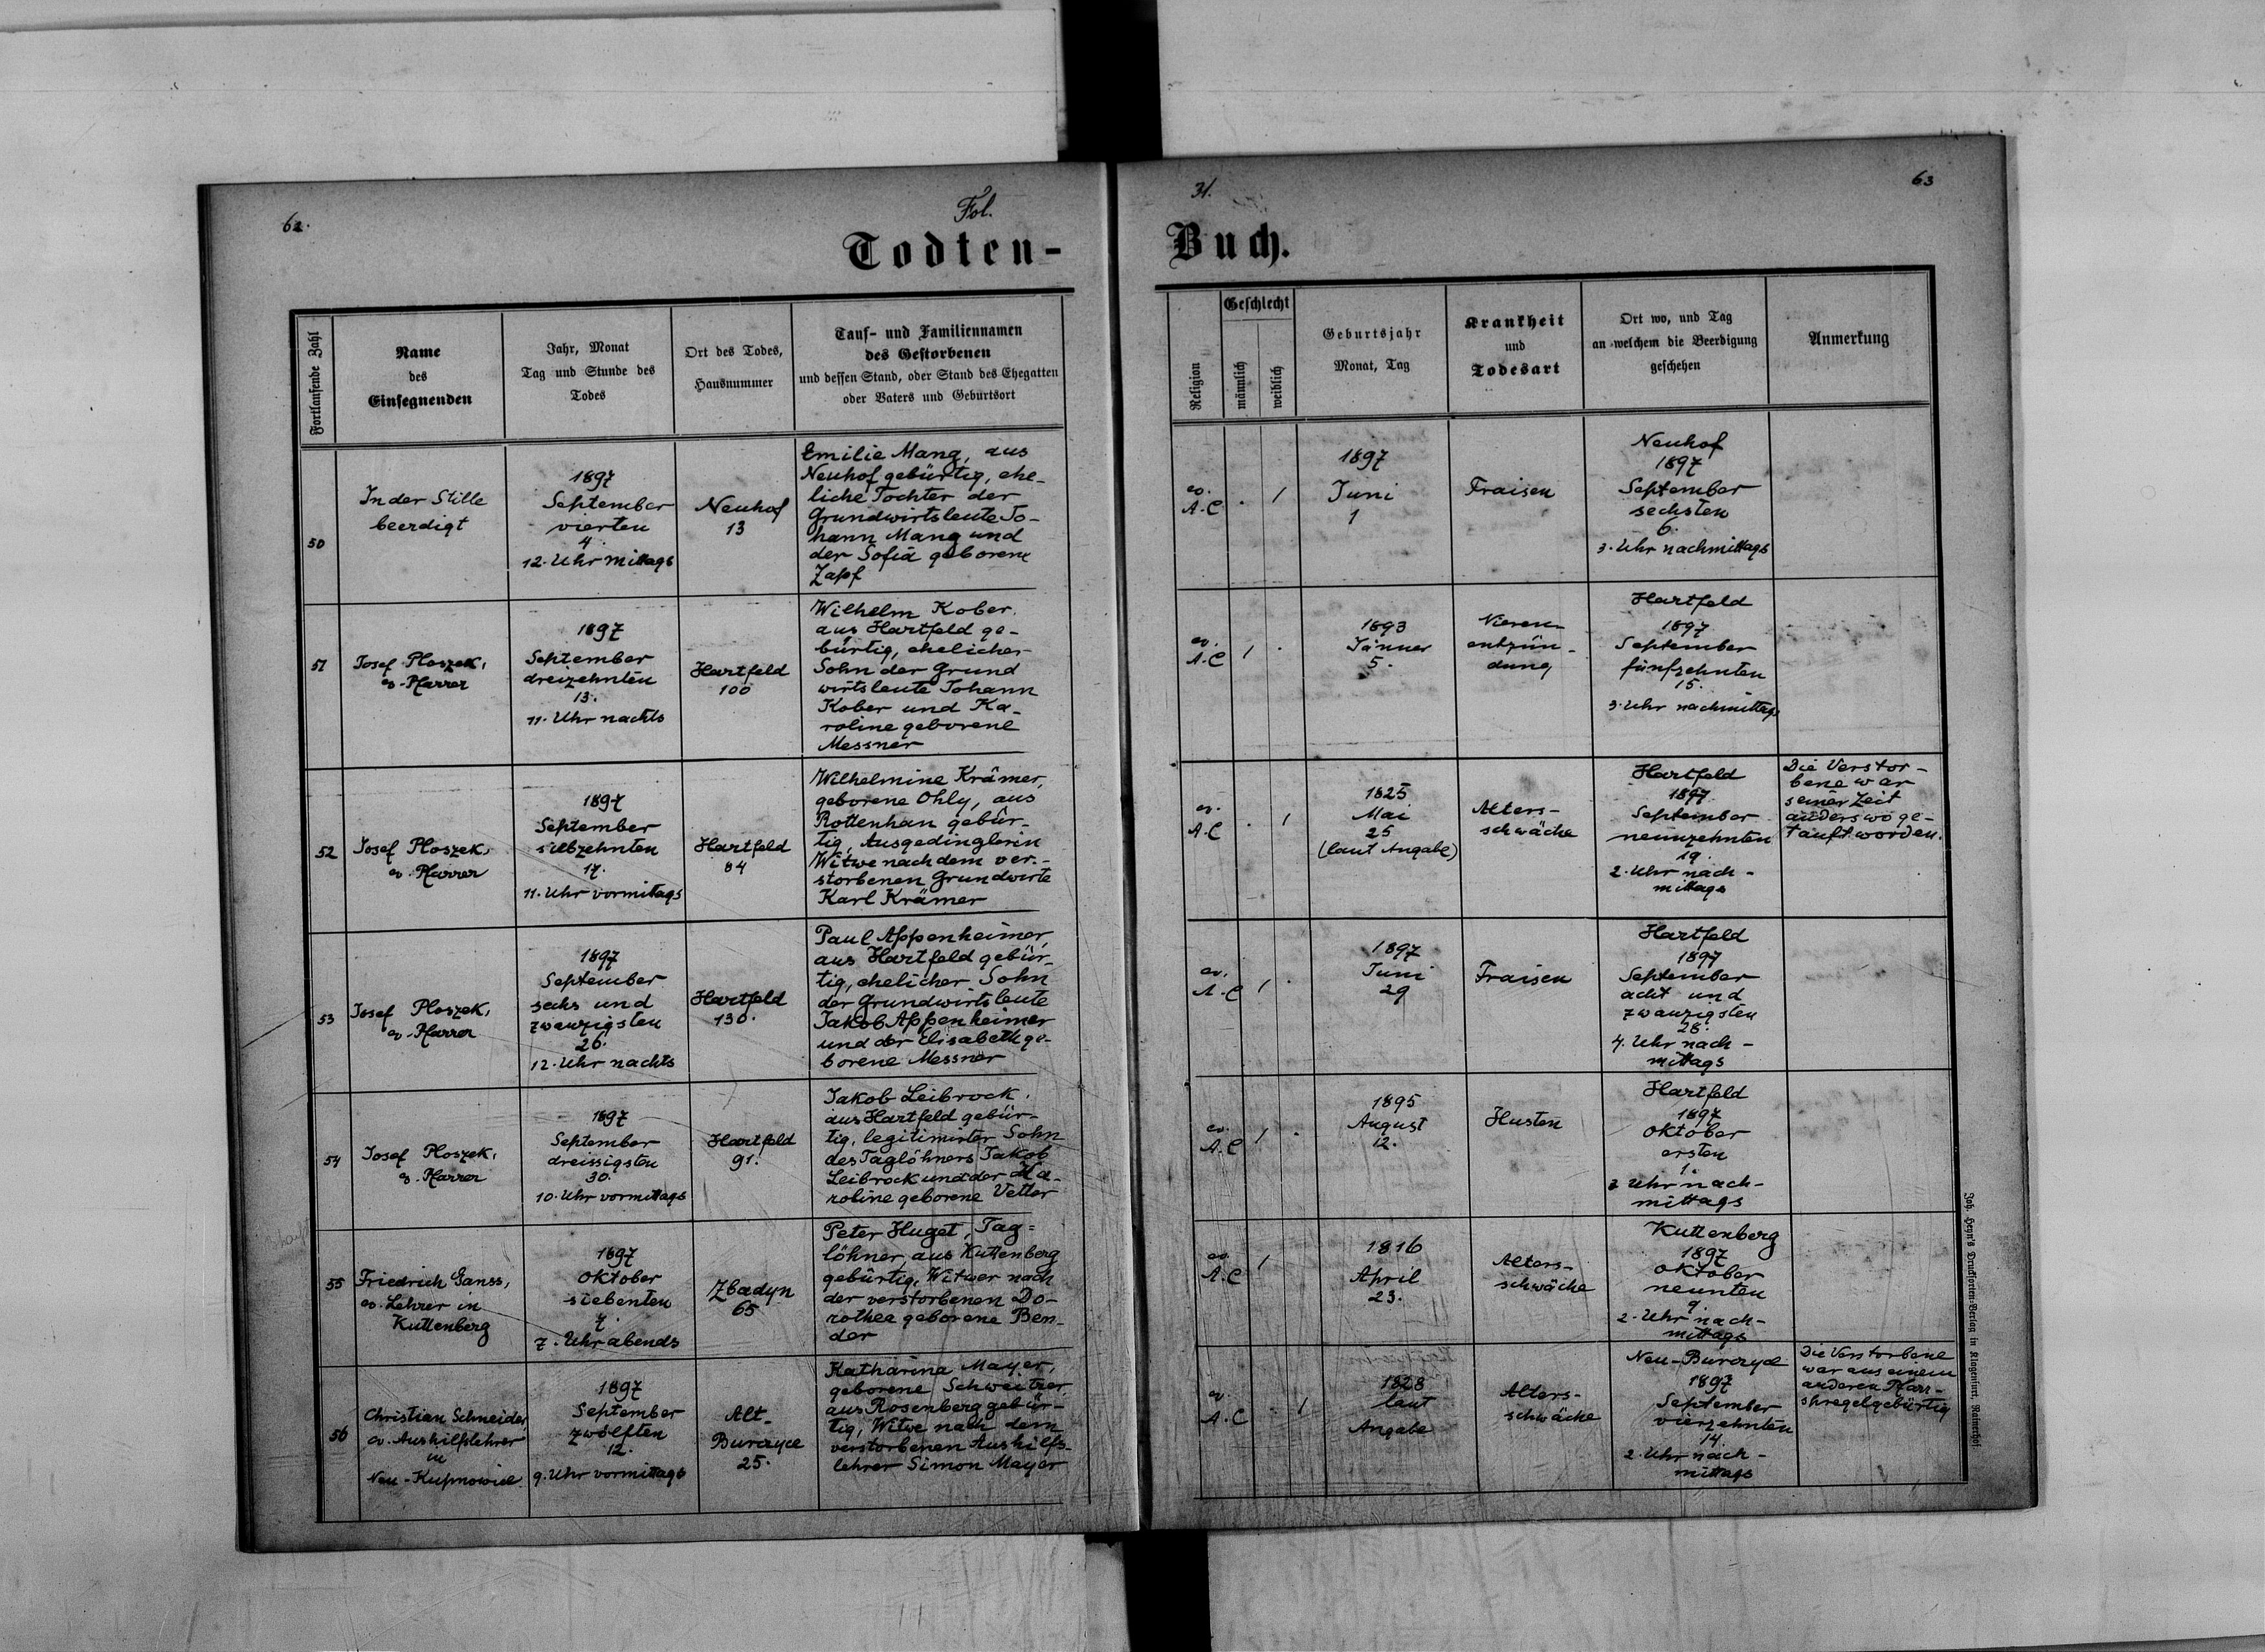 62.
Fol.
31.
63
Todten-
Buch.
Fortlaufende Zahl
Name
des
Einsegnenden
Jahr, Monat
Tag und Stunde des
Todes
Ort des Todes,
Hausnummer
Tauf- und Familiennamen
des Gestorbenen
und dessen Stand, oder Stand des Ehegatten
oder Vaters und Geburtsort
Religion
Geschlecht
männlich
weiblich
Geburtsjahr
Monat, Tag
Krankheit
und
Todesart
Ort wo, und Tag
an welchem die Beerdigung
geschehen
Anmerkung
50
In der Stille
beerdigt
1897
September
vierten
4.
12. Uhr mittags
Neuhof
13
Emilie Mang, aus
Neuhof gebürtig, ehe-
liche Tochter der
Grundwirtsleute Jo-
hann Mang und
der Sofia geborene
Zapf
ev.
A.C
.
1
1897
Juni
1
Fraisen
Neuhof
1897
September
sechsten
6.
3. Uhr nachmittags
51
Josef Ploszek,
ev. Pfarrer
1897
September
dreizehnten
13.
11. Uhr nachts
Hartfeld
100
Wilhelm Kober,
aus Hartfeld ge-
bürtig, ehelicher
Sohn der Grund
wirtsleute Johann
Kober und Ka-
roline geborene
Messner
ev.
A.C
1
.
1893
Jänner
5.
Nieren-
entzün-
dung
Hartfeld
1897
September
fünfzehnten
15.
3. Uhr nachmittags
52
Josef Ploszek,
ev. Pfarrer
1897
September
siebzehnten
17.
11. Uhr vormittags
Hartfeld
84
Wilhelmine Krämer,
geborene Ohly, aus
Rottenhan gebür-
tig, Ausgedinglerin
Witwe nach dem ver-
storbenen Grundwirte
Karl Krämer
ev.
A.C
.
1
1825
Mai
25
(laut Angabe)
Alters-
schwäche
Hartfeld
1897
September
neunzehnten
19.
2. Uhr nach-
mittags
Die Verstor-
bene war
seiner Zeit
anderswo ge-
tauft worden.
53
Josef Ploszek,
ev. Pfarrer
1897
September
sechs und
zwanzigsten
26.
12. Uhr nachts
Hartfeld
130.
Paul Appenheimer,
aus Hartfeld gebür-
tig, ehelicher Sohn
der Grundwirtsleute
Jakob Appenheimer
und der Elisabeth ge-
borene Messner
ev.
A.C
1
.
1897
Juni
29
Fraisen
Hartfeld
1897
September
acht und
zwanzigsten
28.
4. Uhr nach-
mittags
54
Josef Ploszek,
ev. Pfarrer
1897
September
dreissigsten
30.
10. Uhr vormittags
Hartfeld
91.
Jakob Leibrock,
aus Hartfeld gebür-
tig, legitimirter Sohn
des Taglöhners Jakob
Leibrock und der Ka-
roline geborene Vetter
ev.
A.C
1
.
1895
August
12.
Husten
Hartfeld
1897
Oktober
ersten
1.
2 Uhr nach-
mittags
55
Friedrich Ganss,
ev. Lehrer in
Kuttenberg
1897
Oktober
siebenten
7.
7. Uhr abends
Zbadyn
65
Peter Huget, Tag=
löhner, aus Kuttenberg
gebürtig, Witwer nach
der verstorbenen Do-
rothee geborene Ben-
der
ev.
A.C
1
1816
April
23.
Alters-
schwäche
Kuttenberg
1897
Oktober
neunten
9.
2. Uhr nach-
mittags
56
Christian Schneider,
ev. Aushilfslehrer
in
Neu-Kupnowice
1897
September
zwölften
12.
9. Uhr vormittags
Alt-
Burczyce
25.
Katharina Mayer,
geborene Schweitzer,
aus Rosenberg gebür-
tig, Witwe nach dem
verstorbenen Aushilfs-
lehrer Simon Mayer
ev.
A.C
.
1
1828
laut
Angabe
Alters-
schwäche
Neu-Burczyce
1897
September
vierzehnten
14.
2. Uhr nach-
mittags
Die Verstorbene
war aus einem
anderen Pfarr-
sprengel gebürtig
Joh. Heyn's Drucksorten-Verlag in Klagenfurt, Rainerhof.